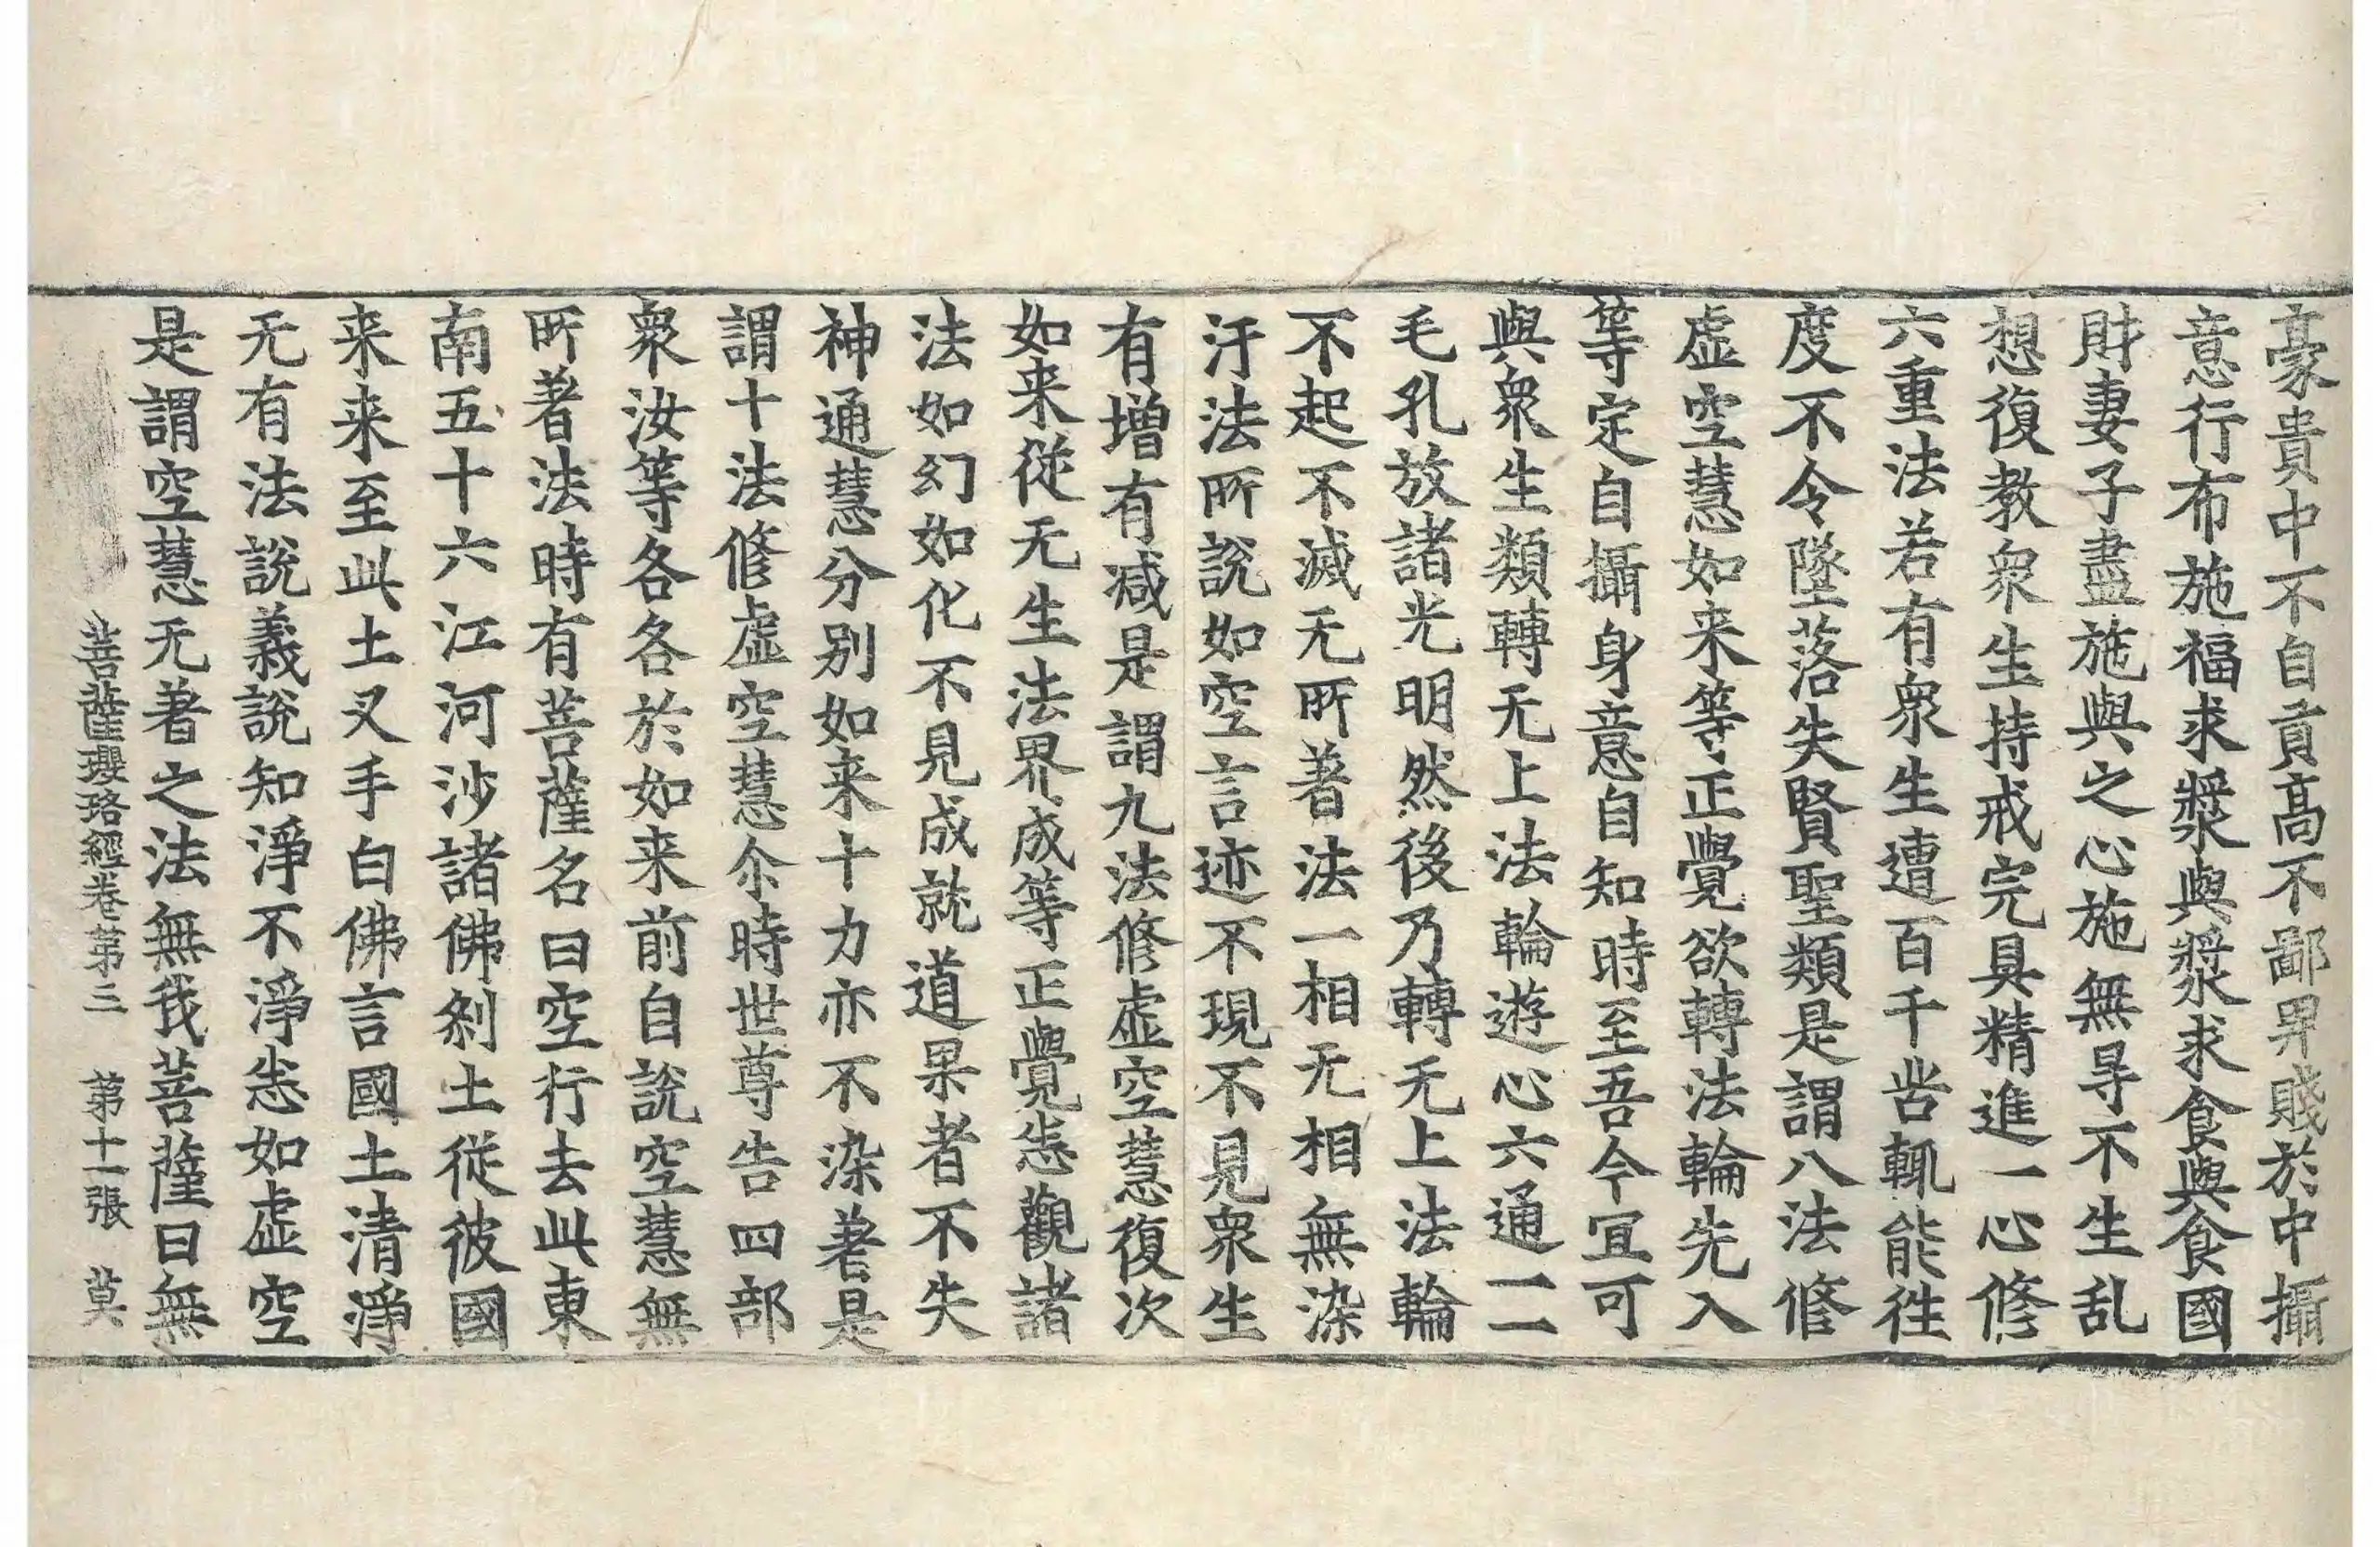 豪貴中不自貢高不鄙卑賤於中攝
意行布施福求漿與漿求食與食國
財妻子盡施與之心施無㝵不生乱
想復教衆生持戒完具精進一心修
六重法若有衆生遭百千苦輒能徃
度不令墜落失賢聖類是謂八法修
虛空慧如来等正覺欲轉法輪先入
等定自攝身意自知時至吾今宜可
與衆生類轉无上法輪遊心六通一一
毛孔放諸光明然後乃轉无上法輪
不起不滅无所著法一相无相無染
汙法所說如空言迹不現不見衆生
有增有减是謂九法修虛空慧復次
如来從无生法界成等正覺悉觀諸
法如幻如化不見成就道果者不失
神通慧分别如来十力亦不染著是
謂十法修虛空慧尒時世尊告四部
衆汝等各各於如来前自說空慧無
所著法時有菩薩名曰空行去此東
南五十六江河沙諸佛剎土從彼國
来来至此土叉手白佛言國土清淨
无有法說義說知淨不淨悉如虛空
是謂空慧无著之法無我菩薩曰無
菩薩瓔珞經卷第三 第十一張 莫